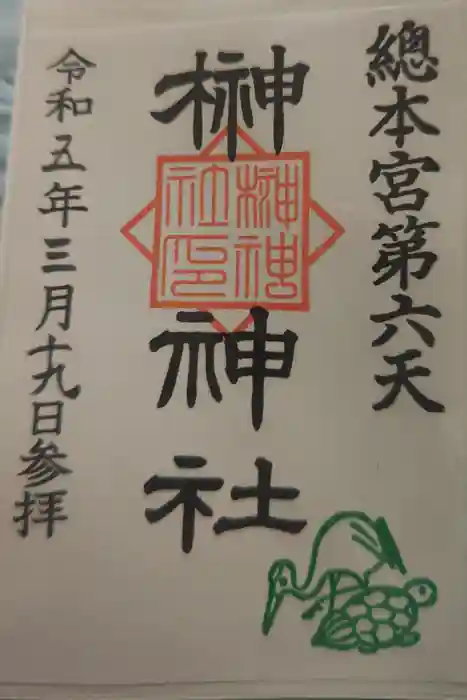 總本宮第六天
榊神社
榊神社印
令和五年三月十九日参拝